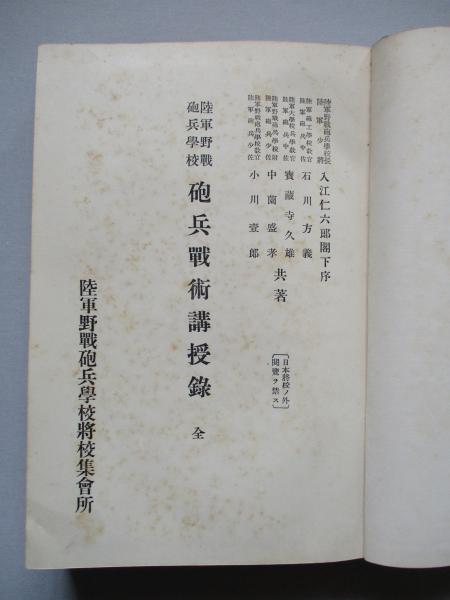 陸軍野戰砲兵學校長
陸軍少將
入江仁六郎閣下序
陸軍砲工學校教官
陸軍砲兵中佐
石川方義
陸軍大學校兵學教官
陸軍砲兵中佐
寳藏寺久雄
陸軍野戰砲兵學校附
陸軍砲兵少佐
中薗盛孝
陸軍野戰砲兵學校教官
陸軍砲兵少佐
小川壹郎
共著
〔日本將校ノ外
閲覽ヲ禁ス〕
陸軍野戰
砲兵學校
砲兵戰術講授錄
全
陸軍野戰砲兵學校將校集會所